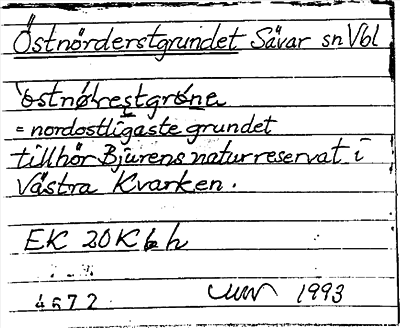 Östnörderstgrundet Sävar sn Vbl
östnørestgrøne
= nordostligaste grundet
tillhör Bjurens naturreservat i
Västra Kvarken.
EK 20K 6h
4572 1993